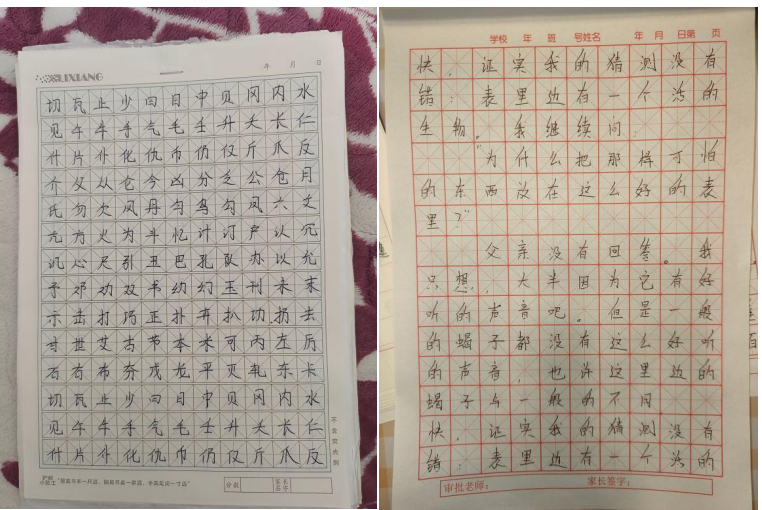 SLIXIANG
年 月 日
切瓦止少曰日中贝冈内水
见午牛手气毛壬升夭长仁
什片仆化仇币仍仅斤爪反
介父从仓今凶分乏公仓月
氏勿欠风丹匀乌勾凤六文
亢方火为斗忆计订户认冗
讥心尺引丑巴孔队办以允
予邓劝双书幼幻玉刊未末
示击打巧正扑卉扒功扔去
甘世艾古节本术可丙左厉
石右布夯戊龙平灭轧东卡
切瓦止少曰日中贝冈内水
见午牛手气毛壬升夭长仁
什片仆化仇币仍仅斤爪反
护眼小贴士
"眼离书本一尺远，胸离书桌一拳远，手离笔尖一寸远"
分数
家长签字
学校 年 班 号姓名 年 月 日第 页
快，证实我的猜测没有
错：表里边有一个活的
生物。我继续问：
"为什么把那样可怕
的东西放在这么好的表
里？"
父亲没有回答。我
只想，大半因为它有好
听的声音吧。但是一般
的蝎子都没有这么好听
的声音，也许这里边的
蝎子与一般的不同
快，证实我的猜测没有
错：表里边有一个活的
审批老师：
家长签字：